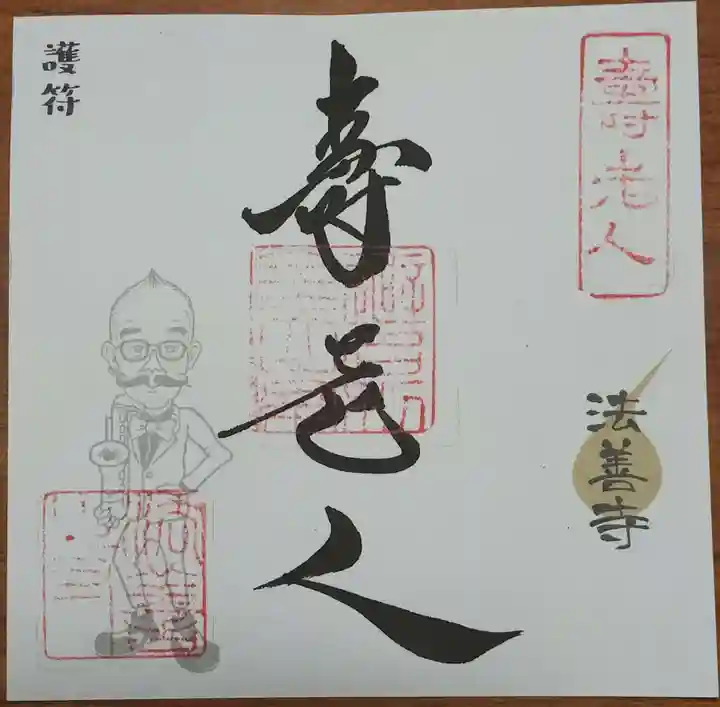 壽老人
法善寺
壽老人
護符